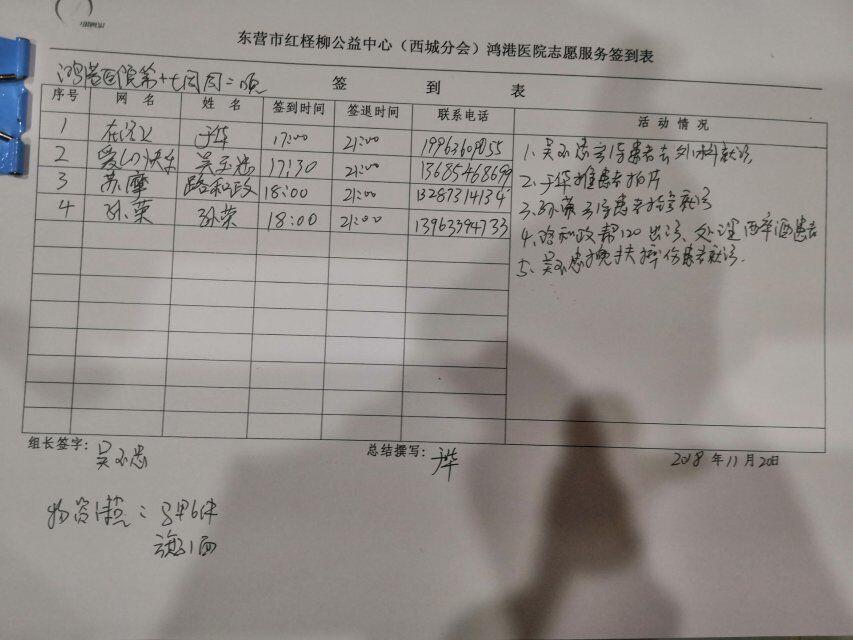 东营市红柽柳公益中心（西城分会）鸿港医院志愿服务签到表
鸿港医院第十七周周二晚 签 到 表
序号 网 名 姓 名 签到时间 签退时间 联系电话 活 动 情 况
1 于华 17:00 21:00
2 17:30 21:00 13685468699
3 苏摩 路和政 18:00 21:00 13287314134
4 孙荣 孙荣 18:00 21:00 13963394733
1、患者去外科就诊
2、于华推患者拍片
3、孙荣 患者 就诊
4、路和政帮120出诊、处理 醉酒患者
5、搀扶摔伤患者就诊.
组长签字： 总结撰写：于华 2018 年 11 月 20日
物资 ：马甲6件
旗1面